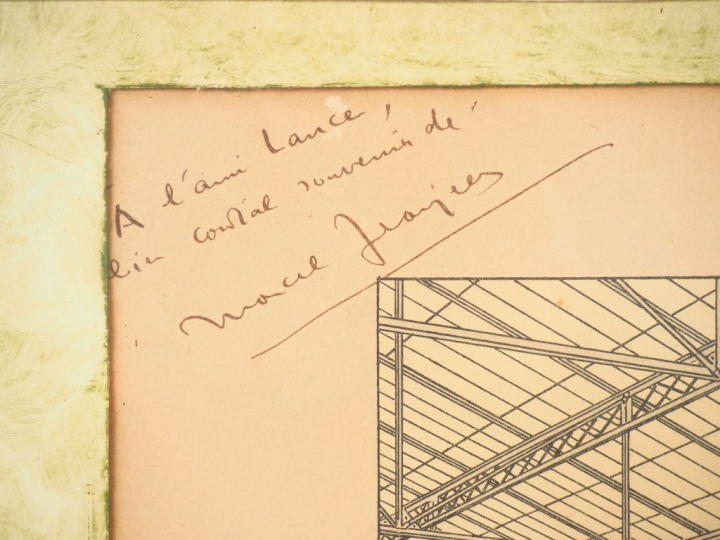 A l'ami Lance,
bien cordial souvenir de
Marcel Jeanjean